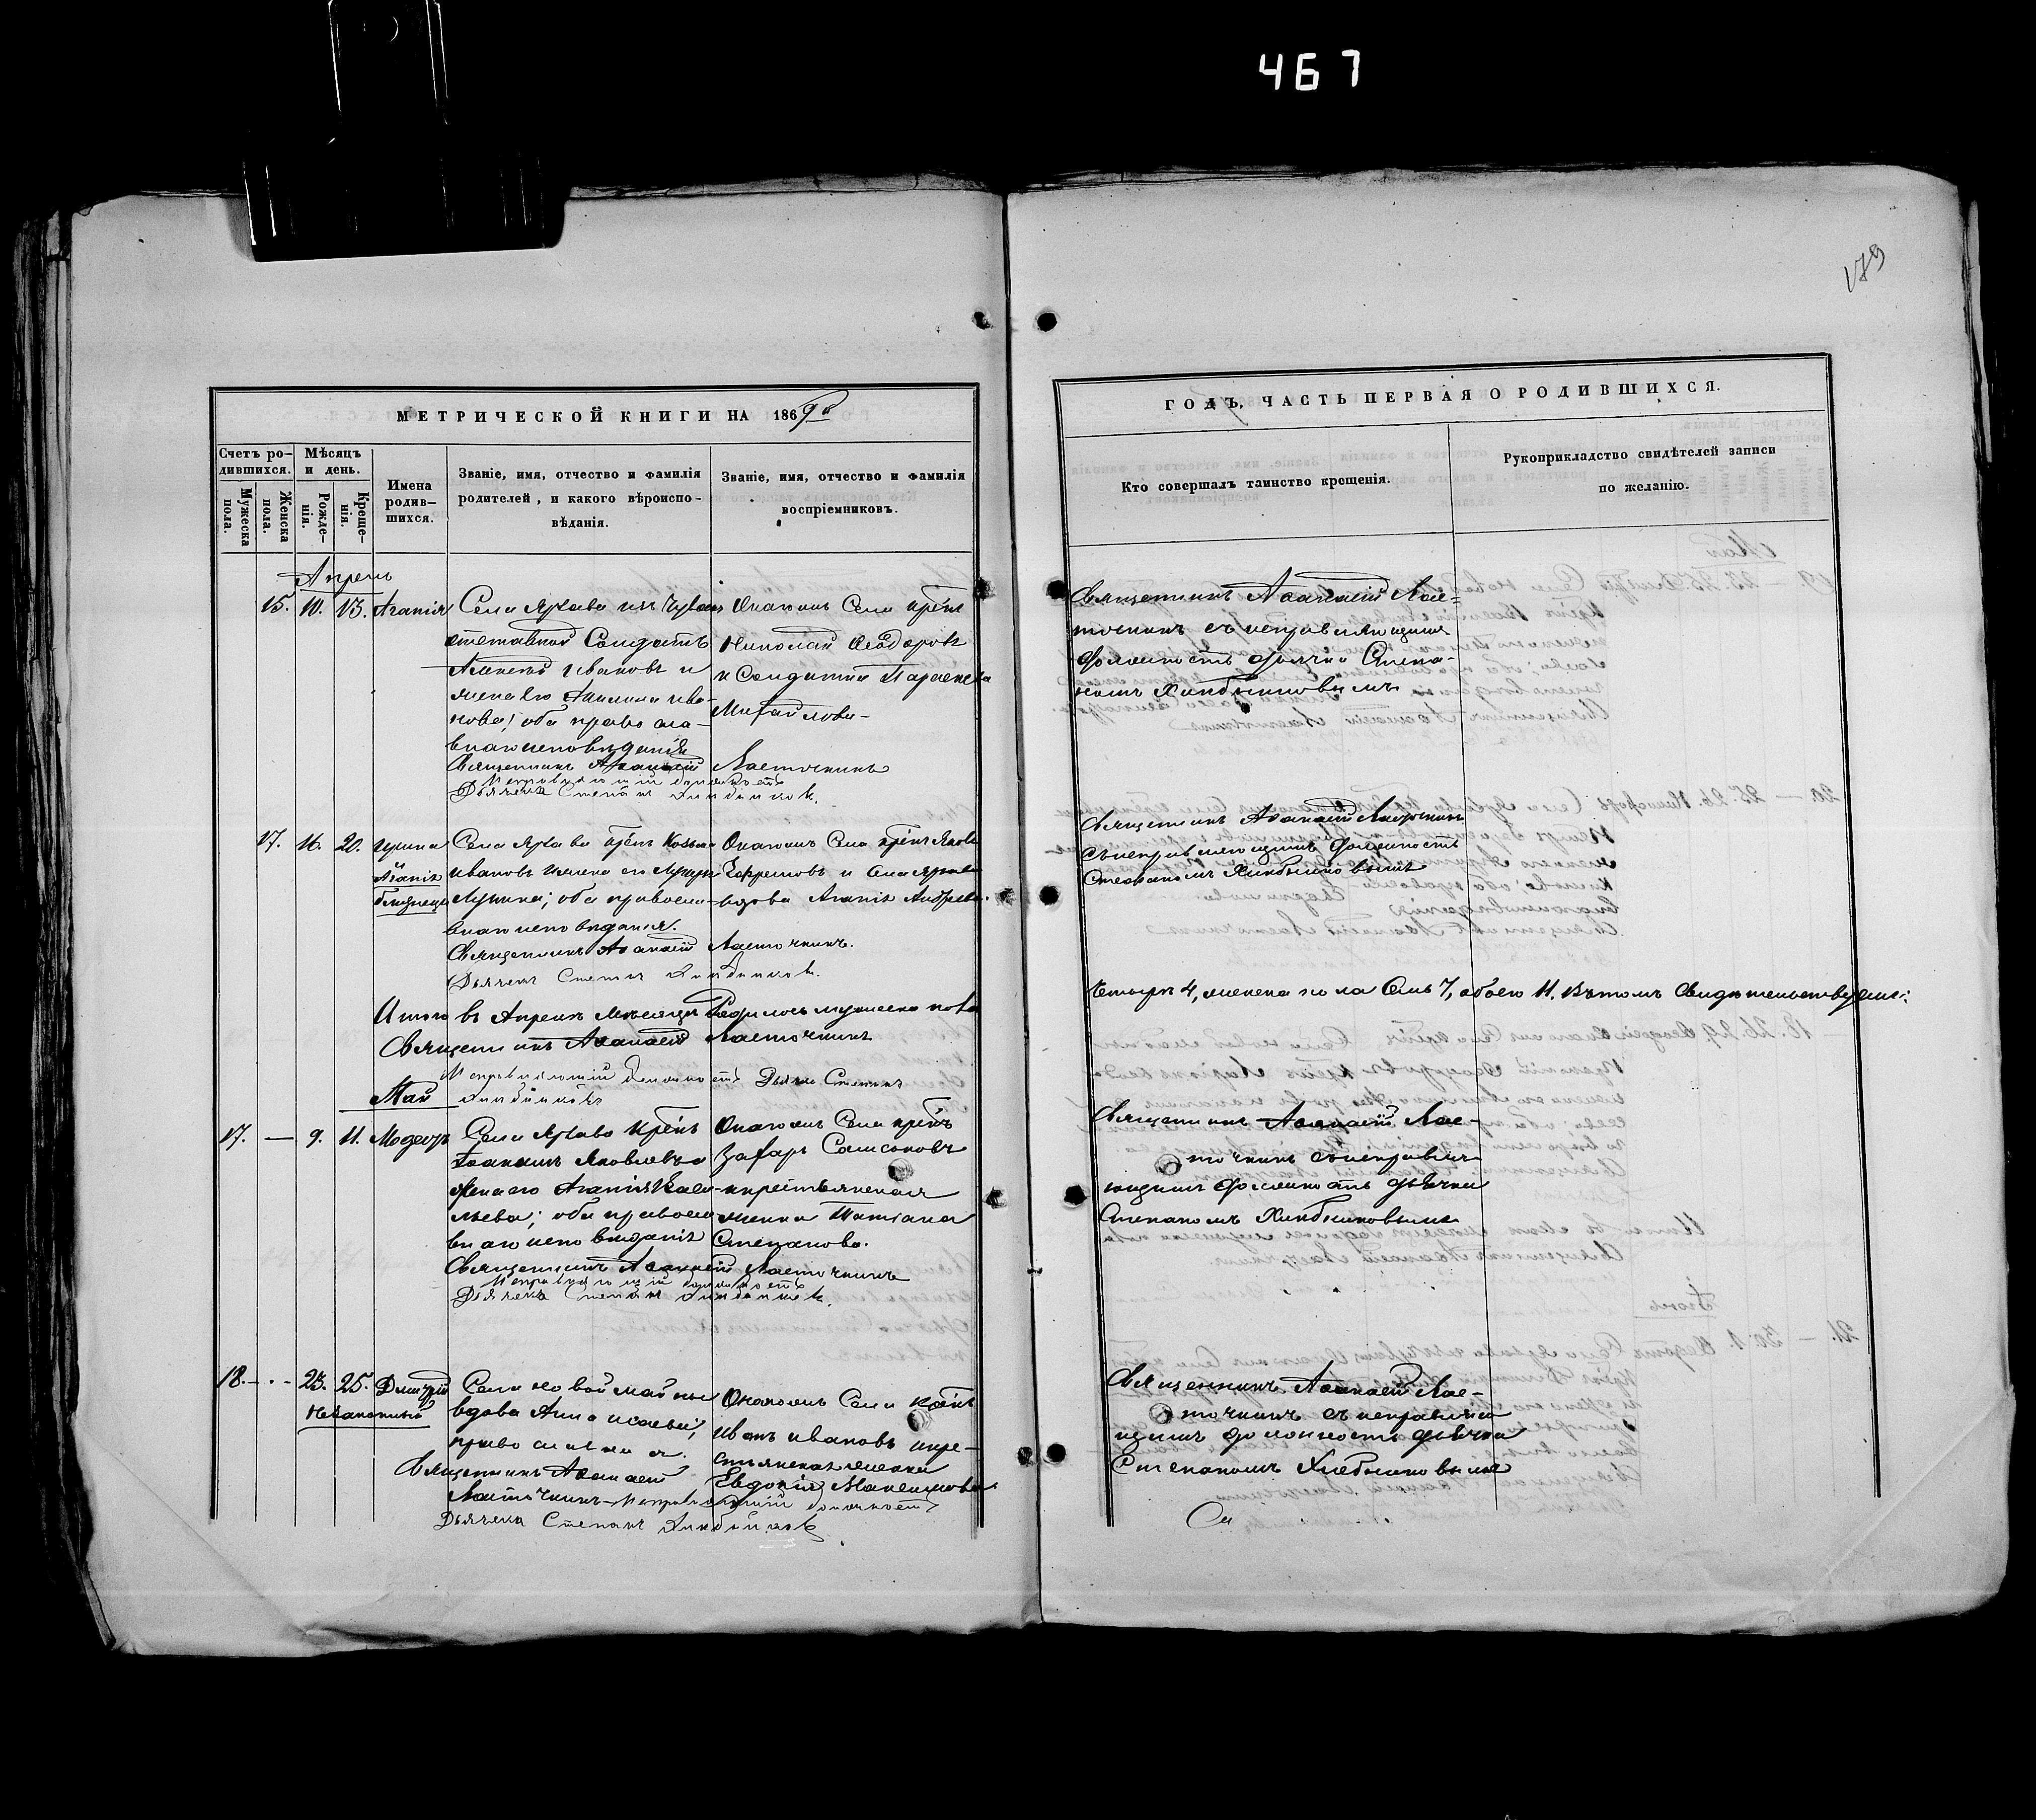 467
179
МЕТРИЧЕСКОЙ КНИГИ НА 1869й
ГОДЪ, ЧАСТЬ ПЕРВАЯ О РОДИВШИХСЯ.
Счетъ ро-
дившихся.
Мужеска
пола.
Женска
пола.
Мѣсяцъ
и день.
Рожде-
нія.
Креще-
нія.
Имена
родив-
шихся.
Званіе, имя, отчество и фамилія
родителей, и какого вѣроиспо-
вѣданія.
Званіе, имя, отчество и фамилія
воспріемниковъ.
Кто совершалъ таинство крещенія.
Рукоприкладство свидѣтелей записи
по желанію.
Апрель
15. 10. 13. Агапія
Села Яркова изъ Чувашъ
отставной Солдатъ
Алексѣй Ивановъ и
жена его Акилина Ива-
нова; оба право сла-
внаго исповѣданія
Священникъ Афанасій Ласточкинъ
Дьячека Степанъ
Онагожъ Села крест
Николай Ѳеодоровъ
и Солдатка Параскева
Михайлова
Священникъ Афанасій Лас-
точкинъ съ исправляющимъ
должность дьячка Степа-
номъ Хлѣбниковымъ
17. 16. 20. Ирина
Агапія
близнецы
Села Яркова крест Козьма
Ивановъ и жена его
Лукина; оба правосла-
внаго исповѣданія.
Священникъ Афанасій Ласточкинъ.
Дьячекъ Степанъ
Онагожъ Села крестъ Яковъ
Ефремовъ и Села Яркова
вдова Агапія Андреева.
Священникъ Афанасій Ласточкинъ
съ исправляющимъ должность
Стефаномъ Хлѣбниковымъ
Итого въ Апрелѣ Мѣсяцѣ Родилось мужеска пола
четыре 4, женска пола Семь 7, обоего 11. Въ томъ Свидѣтельствуемъ:
Священникъ Афанасій Ласточкинъ
Исправляющій должность Дьячка Степанъ
Май
17. — 9. 11.
Села Яркова крест
Іоакимъ Яковлевъ и
жена его Агапія Васи-
льева; оба правосла
внаго исповѣданія
Священникъ Афанасій Ласточкинъ
Исправляющій должность
Дьячека Степанъ
Онагожъ Села крест
Захаръ Самсоновъ
и крестьянская
женка Татіана
Степанова.
Священникъ Афанасій Лас-
точкинъ съ исправля-
ющимъ должность дьячка
Степаномъ Хлѣбниковымъ
18. — 23. 25. Дмитрій
незаконный
Села Новой майны
вдова Анна Исаева;
православная.
Священникъ Афанасій
Ласточкинъ Исправляющій должность
Дьячека Степанъ
Онагожъ Села крест
Иванъ Ивановъ и кре-
стьянская женка
Евдокія Максимова
Священникъ Афанасій Лас-
точкинъ съ исправляю
щимъ должность дьячка
Степаномъ Хлебниковымъ